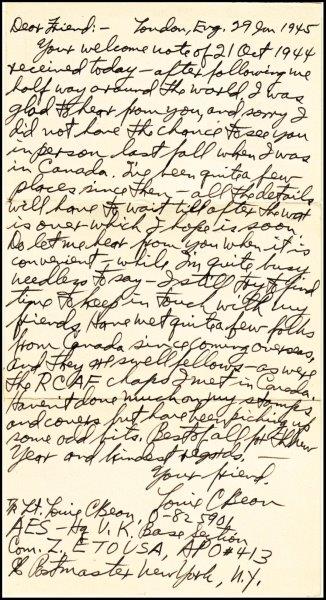 Dear Friend:- London, Eng, 29 Jan 1945
Your welcome note of 21 Oct 1944
received today - after following me
half way around the world. I was
glad to hear from you, and sorry I
did not have the chance to see you
in person last fall when I was
in Canada. I've been quite a few
places since then - all the details
will have to wait till after the war
is over which I hope is soon.
Do let me hear from you when it is
convenient - while I'm quite busy
needless to say - I still try to find
time to keep in touch with my
friends. Have met quite a few folks
from Canada since coming overseas,
and they are swell fellows - as were
the RCAF chaps I met in Canada.
Haven't done much on my stamps
and covers but have been picking up
some odd bits. Best of all for the New
Year and kindest regards. -
Your friend,
Louie C Beon
1st Lt. Louie C Beon
AES - Hq U.K. Base Section
Com. Z, ETOUSA, APO #413
% Postmaster New York, N.Y.